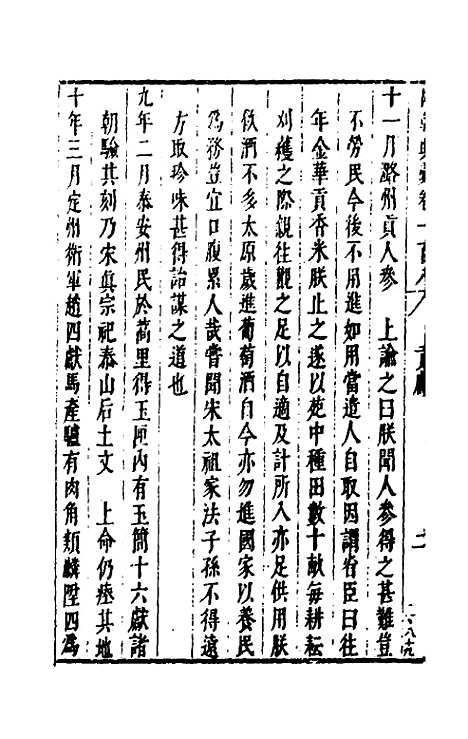 國朝典彙卷一百八 貢獻 十一
十一月潞州貢人參　上諭之曰朕聞人參得之甚難豈
不勞民今後不用進如用當遣人自取因謂省臣曰往
年金華貢香米朕止之遂以苑中種田數十畝每耕耘
刈穫之際親往觀之足以自適及計所入亦足供用朕
飲酒不多太原歲進葡萄酒自今亦勿進國家以養民
為務豈宜口腹累人哉嘗聞宋太祖家法子孫不得遠
方取珍味甚得詒謀之道也
九年二月泰安州民於蒿里得玉匣內有玉簡十六獻諸
朝驗其刻乃宋真宗祀泰山后土文　上命仍瘞其地
十年三月定州衛軍趙四獻馬產驢有肉角類麟陞四為